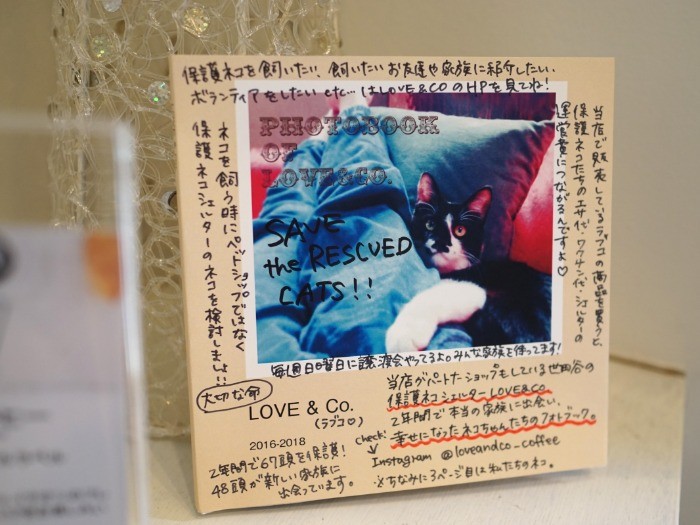 保護ネコを飼いたい、飼いたいお友達や家族に紹介したい、
ボランティアをしたい etc… はLOVE&COのHPを見てね!
ネコを飼う時にペットショップではなく
保護ネコシェルターのネコを検討しましょい!
PHOTOBOOK
OF
LOVE&Co.
SAVE
the RESCUED
CATS!!
当店で販売しているラブコの商品を買うと、
保護ネコたちのエサ代・ワクチン代・シェルターの
運営費につながるんですよ♡
毎週日曜日に譲渡会やってるよ。みんな家族を待ってます!
大切な命
LOVE & Co.
(ラブコ)
2016-2018
2年間で67頭を保護!
48頭が新しい家族に
出会っています。
当店がパートナーショップをしている世田谷の
保護ネコシェルターLOVE&CO
2年間で本当の家族に出会い、
幸せになったネコちゃんたちのフォトブック。
check!
Instagram @loveandco_coffee
※ちなみに3ページ目は私たちのネコ。